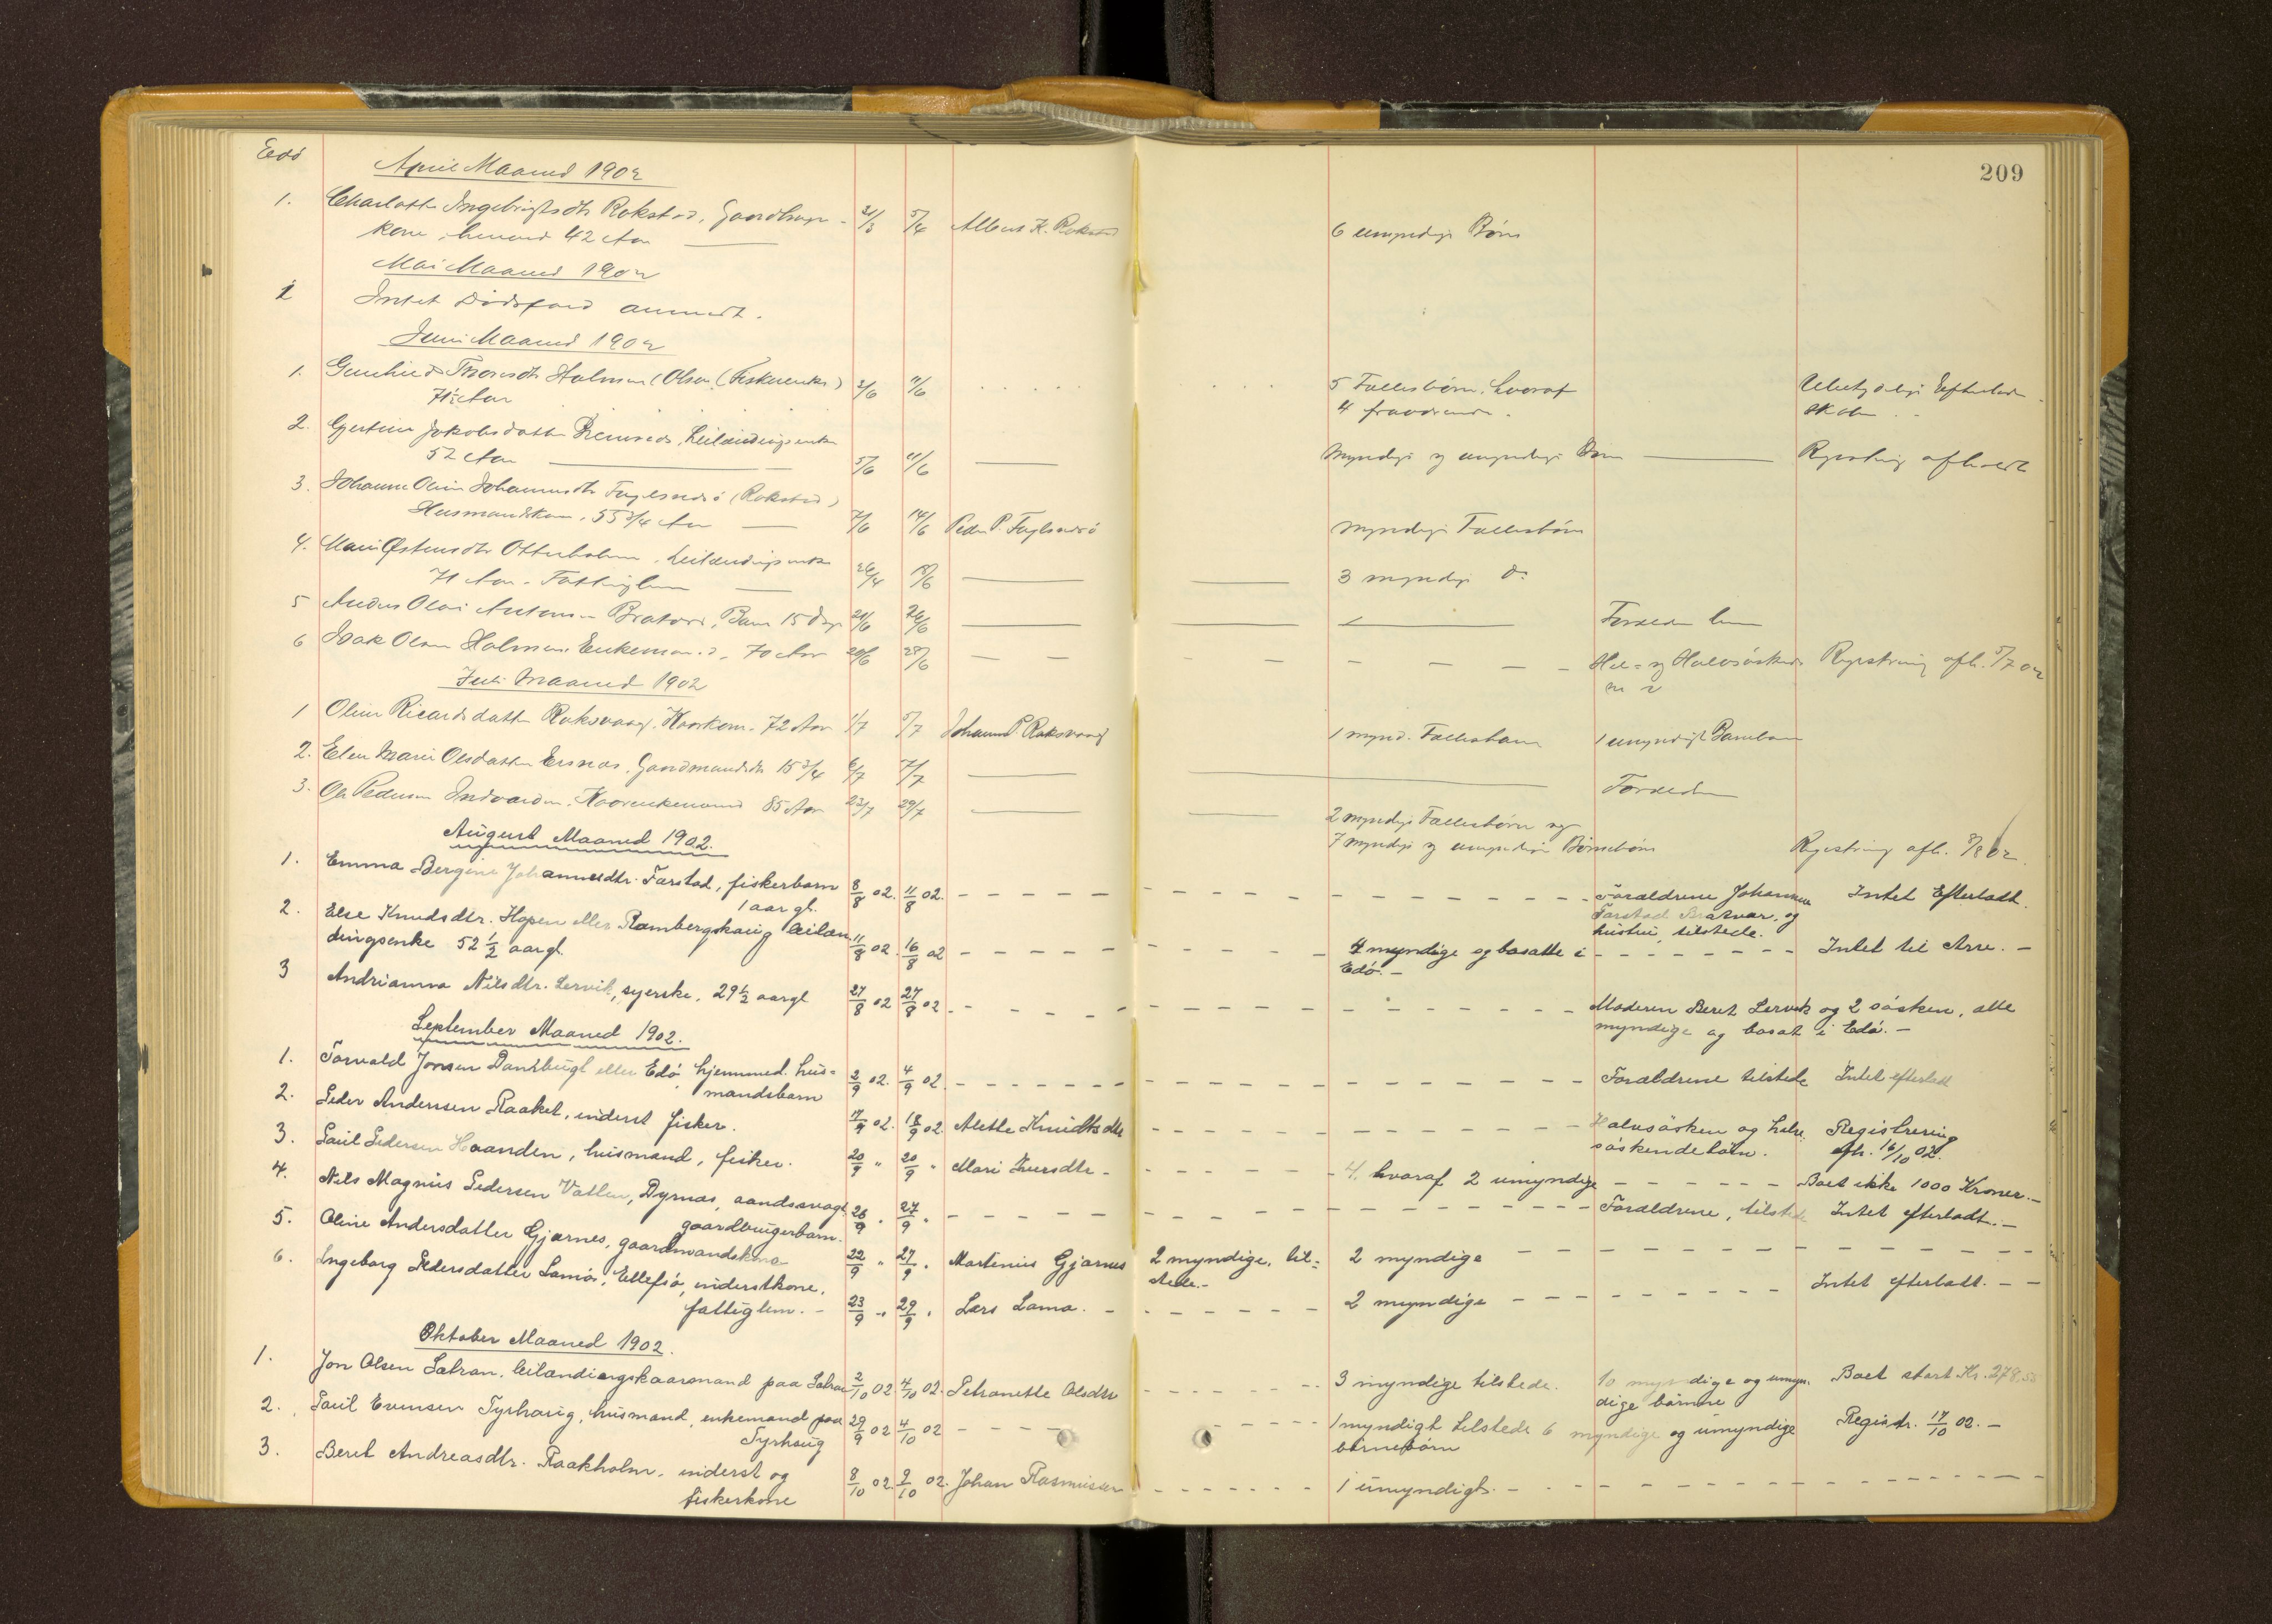 Edö
209
April Maaned 1902
1. Charlotte Ingebrigtsdtr Rokstad, Gaardbruger- 31/3 5/4 Albert K. Rokstad 6 umyndige Børn
kone, henved 42 Aar
Mai Maaned 1902
1 Intet Dødsfald anmeldt.
Juni Maaned 1902
1. Gunhild Thoresdtr Holmen (Olsen) (Fiskerenke) 2/6 11/6 5 Fællesbørn, hvoraf Ubetydelige Efterladen-
71½ Aar 4 fraværende. skaber
2. Gjertine Jakobsdatter, Leilendingsenke
52 Aar 5/6 11/6 Myndige og umyndige Børn Registrering afholdt
3. Johanne Oline Johannesdtr Fuglesnesö (Rokstad)
Husmandskone, 55 3/4 Aar 7/6 14/6 Peder P. Fuglesnesö Myndige Fællesbørn
4. Mari Østensdtr Otterholmen, Leilendingsenke
71 Aar. Fattiglem 26/4 18/6 3 myndige do
5 Anders Olai Antonsen Bratvær, Barn 15 Dage 21/6 26/6 Forældrene
6 Isak Olsen Holmen, Enkemand, 70 Aar 20/6 28/6 Hel- og Halvsöskende Registrering afh. 5/7 02
Juli Maaned 1902
1 Oline Ricardsdatter Roksvaag, Kaarkone, 72 Aar 1/7 5/7 Johannes P. Roksvaag 1 mynd. Fællesbarn 1 umyndigt Barnebarn
2. Elen Marie Olsdatter Ersnes, Gaardmandsdtr 15 3/4 6/7 7/7 Forældre
3. Ole Pedersen Indvorden, Kaarenkemand 85 Aar 23/7 29/7 2 myndige Fællesbørn og
7 myndige og umyndige Børnebørn Registrering afh. 8/8 02.
August Maaned 1902.
1. Emma Bergine Johannesdtr. Farstad, fiskerbarn 8/8 02. 11/8 02. Forældrene Johannes Intet Efterladt.
1 aar gl. Farstad Bratvær, og
hustru, tilstede.
2. Else Knudsdtr. Hopen eller Rambergskaug leilæn- 11/8 02. 16/8 02 4 myndige og bosatte i Intet til Arv. -
dingsenke 52 ½ aargl. Edö. -
3 Andrianna Nilsdtr. Lervik, syerske, 29 ½ aargl 27/8 02 27/8 02 Moderen Beret Lervik og 2 söskén, alle
myndige og bosat i Edö. -
September Maaned 1902.
1. Torvald Jonsen Dansbugt eller Edö, hjemmed. hus- 2/9 02. 4/9 02. Forældrene tilstede Intet efterladt
mandsbarn
2. Peder Andersen Raaket, inderst fisker. 17/9 02. 18/9 02. Alette Knudtsdtr Halvsösken og halv- Registrering
söskendebörn. afh. 16/10 02.
3. Paul Pedersen Haanden, husmand, fisker. 20/9 " 20/9 " Mari Iversdtr. 4. hvoraf 2 umyndige Boet ikke 1000 Kroner. -
4. Nils Magnus Pedersen Vatlen, Dyrnæs, aandssvagt 26/9 " 27/9 " Forældrene, tilstede Intet efterladt. -
gaardbrugerbarn.
5. Oline Andersdatter Gjærnes, gaardmandskone 22/9 " 27/9 " Martinus Gjærnes 2 myndige, til- 2 myndige
stede. -
6. Ingeborg Pedersdatter Lamöi, Ellefsö, inderstkone, Intet efterladt. - -
fattiglem. - 23/9 " 29/9 " Lars Lamo. 2 myndige
Oktober Maaned 1902.
1. Jon Olsen Sætran, leilændingskaarmand paa Sætran 2/10 02 4/10 02. Petronette Olsdtr 3 myndige tilstede. 10 myndige og umyn- Boet stort Kr. 278.55
dige börn
2. Paul Evensen Tyrhaug, husmand, enkemand paa 29/9 02 4/10 02 1 myndigt tilstede 6 myndige og umyndige Registr. 17/10 02. -
Tyrhaug börnebörn
3. Beret Andreasdtr. Raakholm, inderst og 8/10 02. 9/10 02. Johan Rasmussen 1 umyndigt. -
fiskerkone